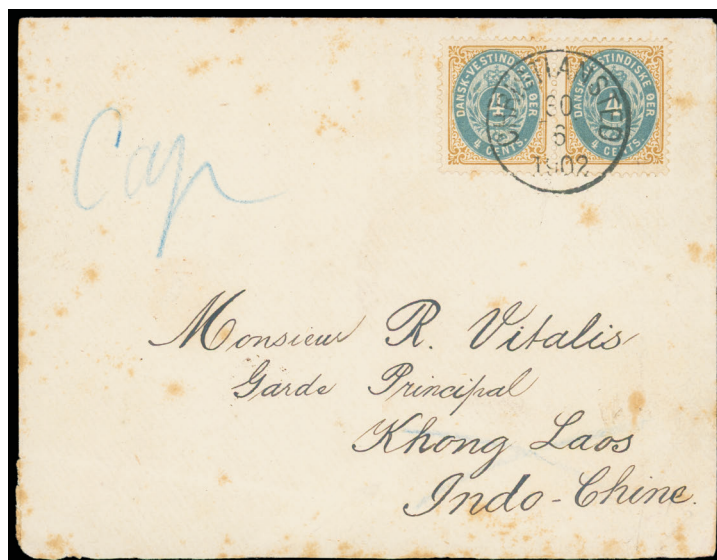 DANSK-VESTINDISKE ØER
4
4 CENTS.
DANSK-VESTINDISKE ØER
4
4 CENTS.
CHRISTIANSTED
30
6
1902
Cap
Monsieur R. Vitalis
Garde Principal
Khong Laos
Indo-Chine.